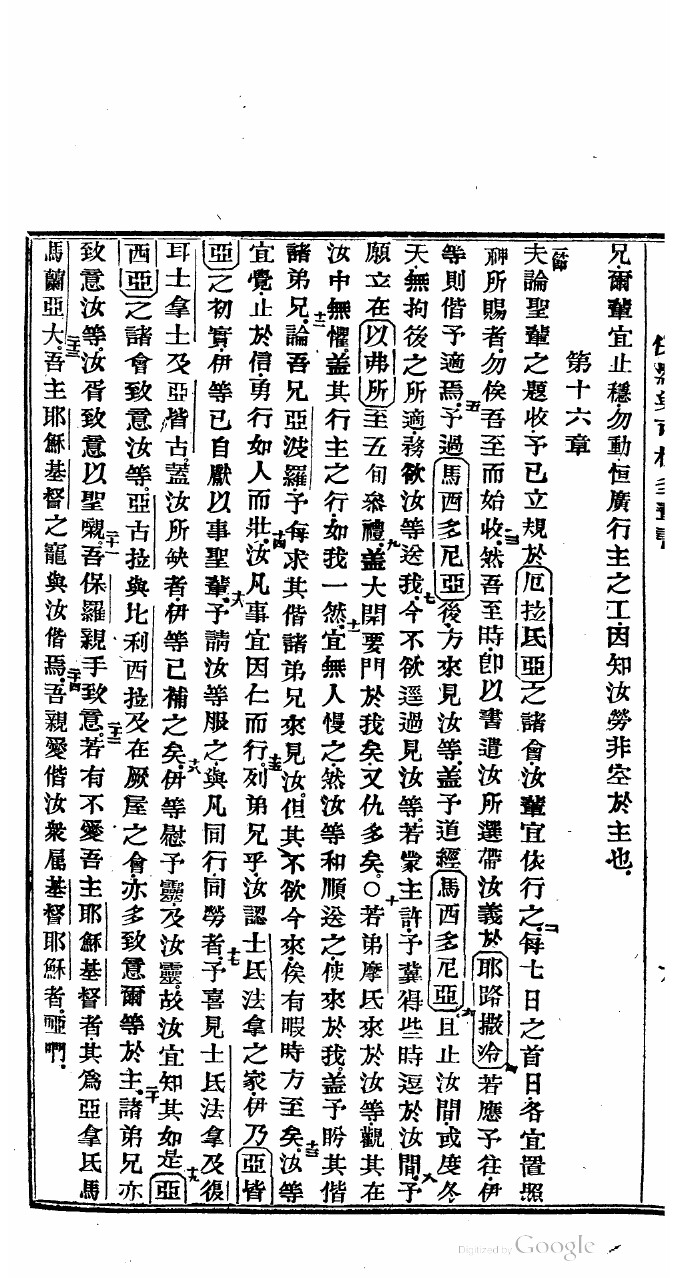 兄.爾輩宜止穩.勿動.恒廣行主之工.因知汝勞非空於主也.
第十六章
一節夫論聖輩之題收.予已立規於厄拉氐亞之諸會.汝輩宜依行之.二每七日之首日.各宜置.照
神所賜者.勿俟吾至而始收.三然吾至時.卽以書遣汝所選.帶汝義於耶路撒冷.四若應予往.伊
等則偕予適焉.五予過馬西多尼亞後.方來見汝等.蓋予道經馬西多尼亞.六且止汝間.或度冬.
天.無拘後之所適.務欲汝等送我.七今不欲逕過見汝等.若蒙主許.予冀得些時逗於汝間.八予
願立在以弗所.至五旬叅禮.九蓋大開要門於我矣.又仇多矣.○十若弟摩氐來於汝等.觀其在
汝中無懼.蓋其行主之行.如我一然.十一宜無人慢之.然汝等和順送之.使來於我.蓋予盼其偕
諸弟兄.十二論吾兄亞波羅.予每求其偕諸弟兄來見汝.但其不欲今來.俟有暇時方至矣.十三汝等
宜覺.止於信.勇行如人而壯.十四汝凡事宜因仁而行.十五列弟兄乎.汝認士氐法拿之家.伊乃亞皆
亞之初實.伊等已自獻以事聖輩.十六予請汝等服之.與凡同行同勞者.十七予喜見士氐法拿及復
耳士拿士及亞皆古.蓋汝所缺者.伊等已補之矣.十八伊等慰予靈.及汝靈.故汝宜知其如是.十九亞
西亞之諸會致意汝等.亞古拉與比利西拉.及在厥屋之會.亦多致意爾等於主.二十諸弟兄亦
致意汝等.汝胥致意以聖嚫.二十一吾保羅親手致意.二十二若有不愛吾主耶穌基督者.其爲亞拿氐馬
馬蘭亞大.二十三吾主耶穌基督之寵與汝偕焉.二十四吾親愛偕汝衆屬基督耶穌者.啞啊.
Digitized by Google